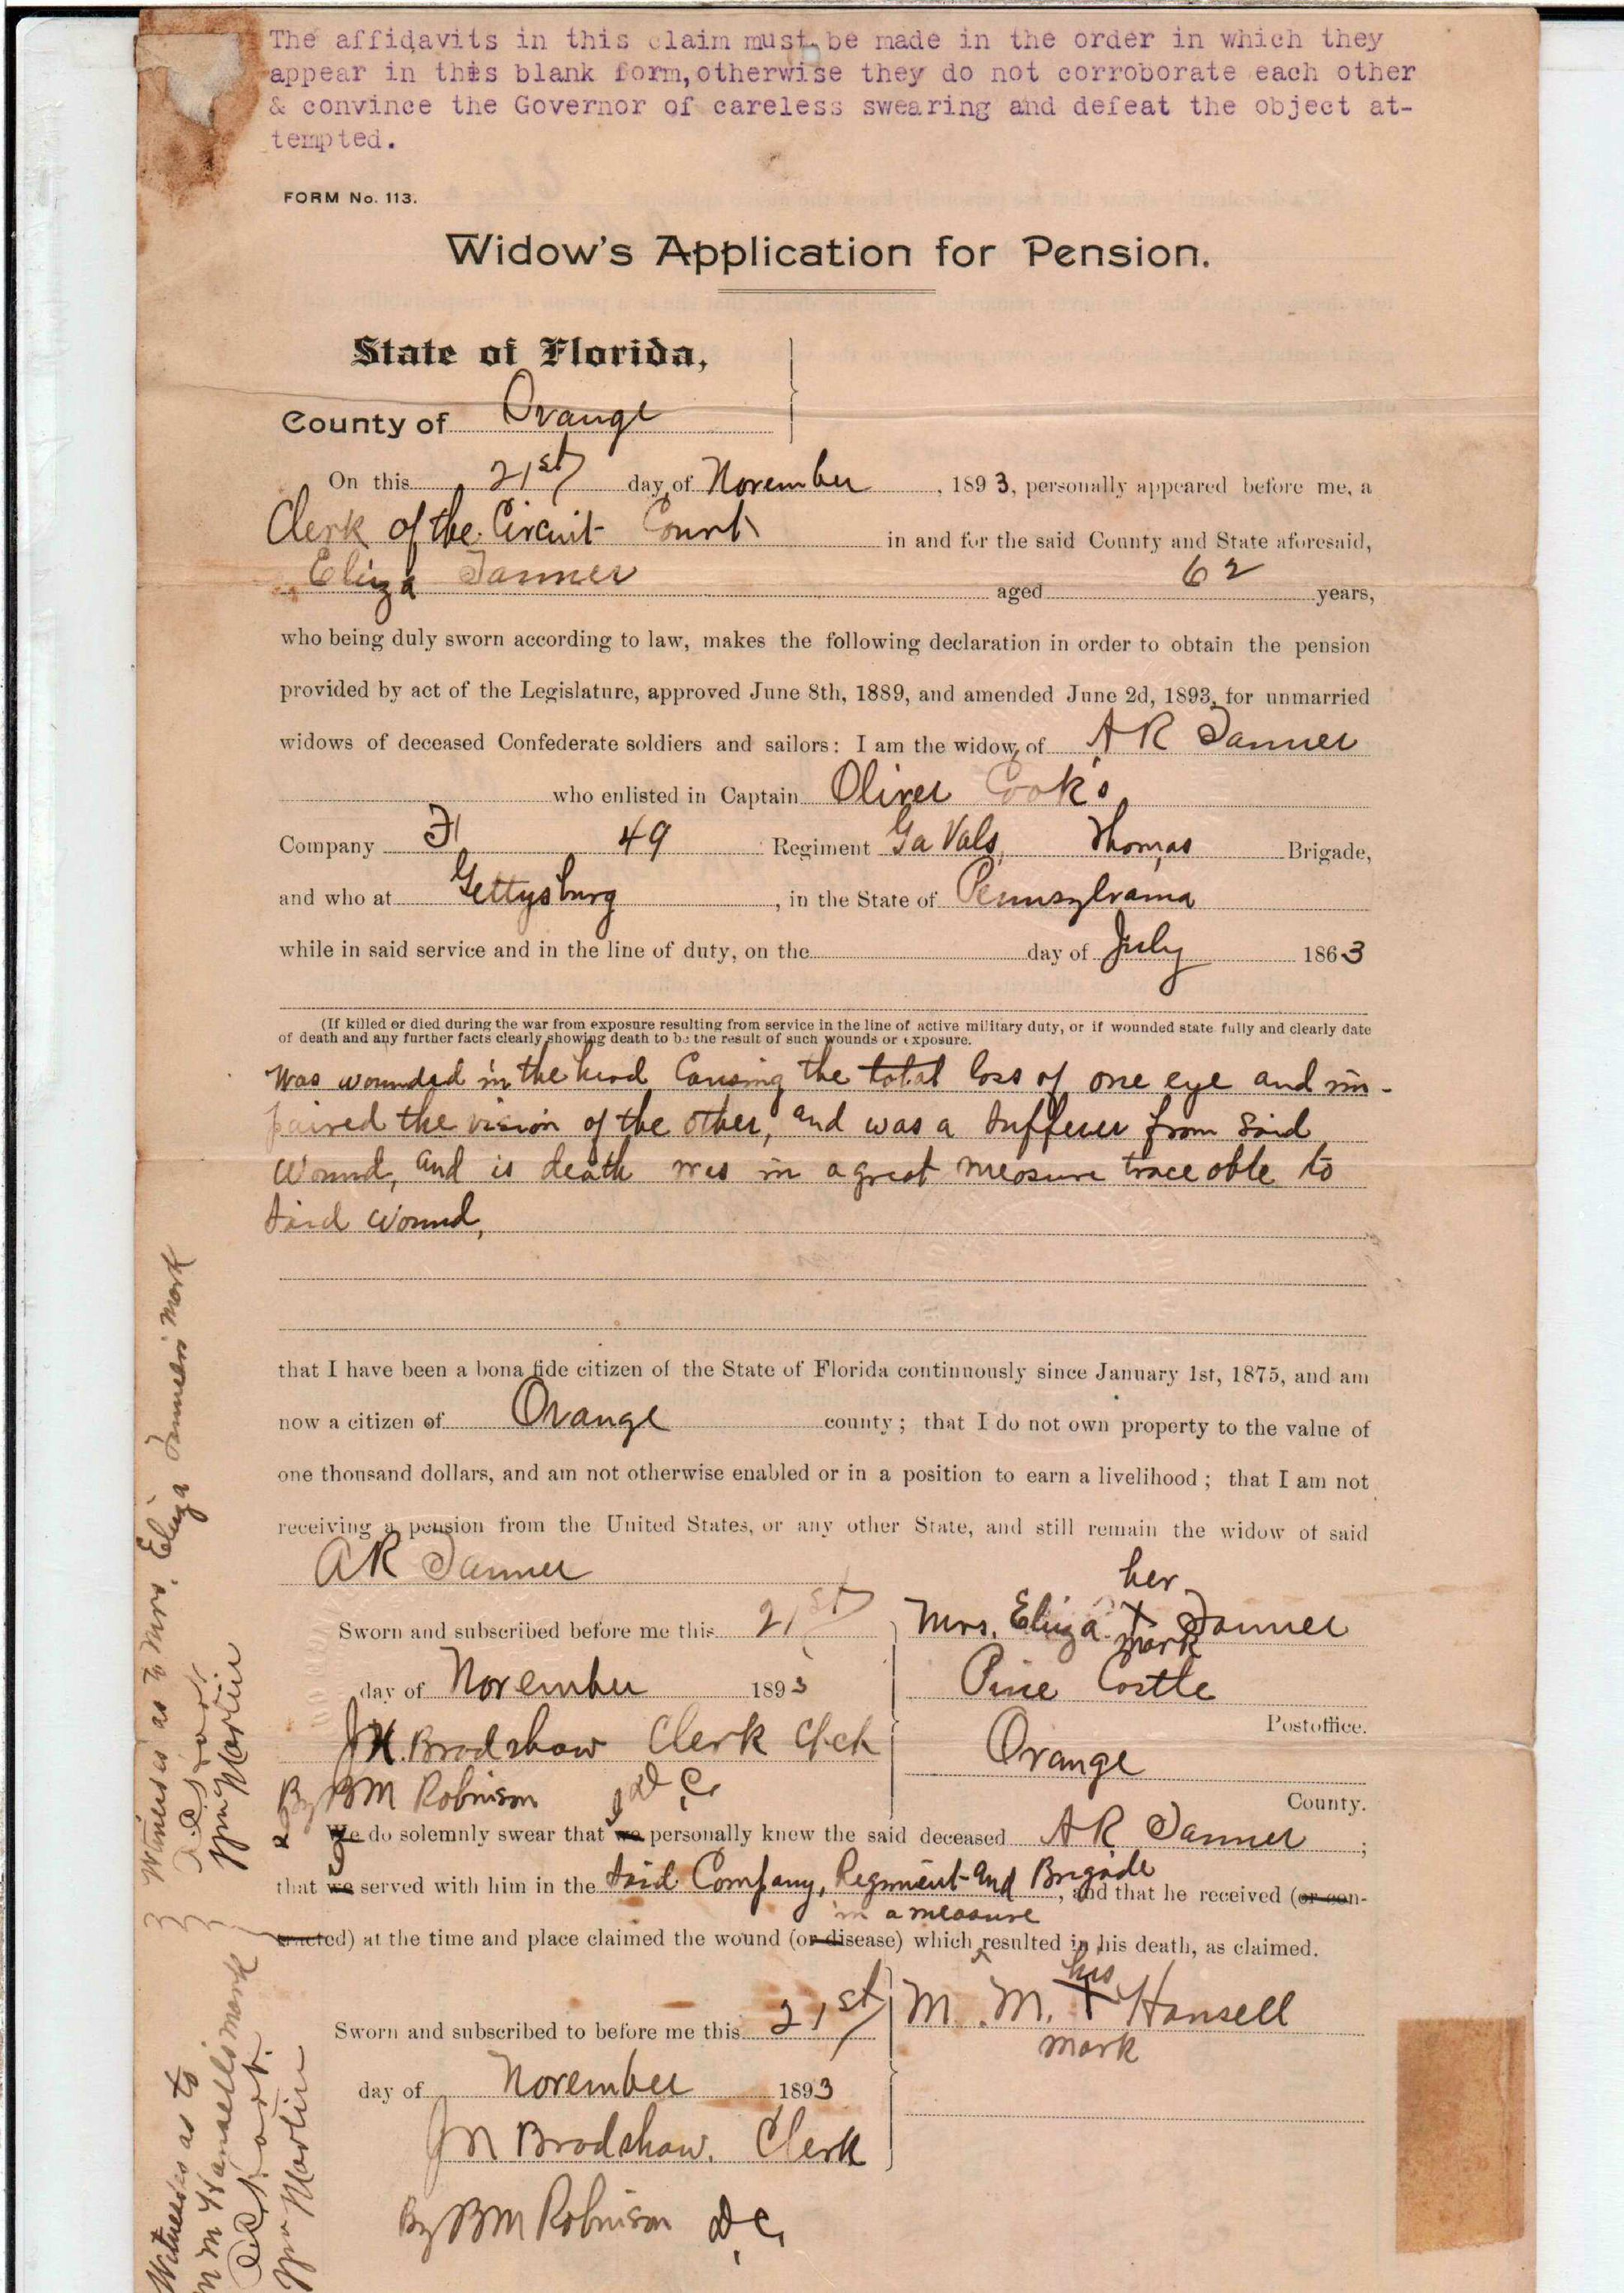 The affidavits in this claim must be made in the order in which they
appear in this blank form, otherwise they do not corroborate each other
& convince the Governor of careless swearing and defeat the object at-
tempted.
FORM No. 113.
Widow's Application for Pension.
State of Florida,
County of Orange
On this 21st day of November, 1893, personally appeared before me, a
Clerk of the Circuit Court in and for the said County and State aforesaid,
Eliza Tanner aged 62 years,
who being duly sworn according to law, makes the following declaration in order to obtain the pension
provided by act of the Legislature, approved June 8th, 1889, and amended June 2d, 1893, for unmarried
widows of deceased Confederate soldiers and sailors: I am the widow of A R Tanner
who enlisted in Captain Oliver Cook's
Company H 49 Regiment Ga Vols, Thomas Brigade,
and who at Gettysburg, in the State of Pennsylvania
while in said service and in the line of duty, on the day of July 1863
(If killed or died during the war from exposure resulting from service in the line of active military duty, or if wounded state fully and clearly date
of death and any further facts clearly showing death to be the result of such wounds or exposure.
was wounded in the head Causing the total loss of one eye and im-
paired the vision of the other, and was a sufferer from said
wound, and is death was in a great measure traceable to
said wound,
that I have been a bona fide citizen of the State of Florida continuously since January 1st, 1875, and am
now a citizen of Orange county; that I do not own property to the value of
one thousand dollars, and am not otherwise enabled or in a position to earn a livelihood; that I am not
receiving a pension from the United States, or any other State, and still remain the widow of said
A R Tanner
her
Sworn and subscribed before me this 21st
Mrs. Eliza X Tanner
mark
day of November 1893
Pine Castle
Postoffice.
J N Bradshaw Clerk
Orange
County.
By B M Robinson D C.
We do solemnly swear that I we personally knew the said deceased A R Tanner;
that we served with him in the said Company, Regiment and Brigade, and that he received (or con-
in a measure
tracted) at the time and place claimed the wound (or disease) which resulted in his death, as claimed.
his
Sworn and subscribed to before me this 21st
M. M. X Hansell
mark
day of November 1893
J N Bradshaw, Clerk
By B M Robinson D C,
Witnesses as to Mrs. Eliza Tanners mark
Wm Martin
Witnesses as to
M M Hansells mark
Wm Martin